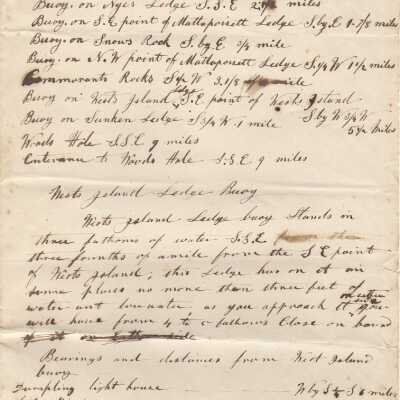 Buoy. on Nyes Ledge S.S.E 2 1/2 miles
Buoy. on S.E point of Mattapoisett Ledge S.by.E 1-7/8 miles
Buoy. on Snows Rock S.by.E 3/4 mile
Buoy. on N.W point of Mattapoisett Ledge S.1/4 W 1 1/2 miles
Cormorants Rocks S 1/4 W 3.1/8 mile
Buoy on Wests Island S.E. point of Wests Island
S by W 3/4 W
Buoy on Sunken Ledge S 3/4 W. 1 mile 5 1/2 miles
Woods Hole S.S.E 9 miles
Entrance to Woods Hole S.S.E 9 miles
Wests Island Ledge Buoy
Wests Island Ledge buoy Stands in
three fathoms of water S.S.E
three fourths of a mile from the S E point
of Wests Island; this Ledge has on it in
some places no more than three feet of
water at low water as you approach it you
on either side
will have from 4 to 5 fathoms Close on board
of it on either side.
Bearings and distances from West Island
buoy
Dumpling light house W by S 1/2 S 6 miles